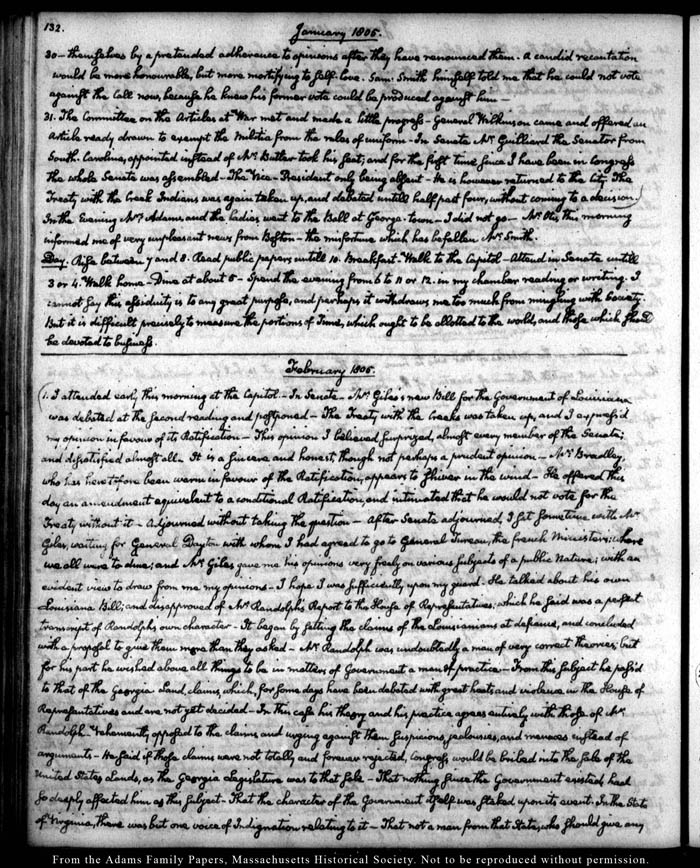 132.
January 1805.
30 — themselves by a pretended adherence to opinions after they have renounced them. A candid recantation
would be more honourable, but more mortifying to self-love. Sam: Smith himself told me that he could not vote
against the Call now, because he knew his former vote could be produced against him —
31. The Committee on the Articles of War met and made a little progress — General Wilkinson came and offered an
Article ready drawn to exempt the Militia from the rules of uniform — In Senate Mr Guilliard the Senator from
South-Carolina, appointed instead of Mr Butler took his seat; and for the first time since I have been in Congress
the whole Senate was assembled — The Vice-President only being absent — He is however returned to the City. The
Treaty with the Creek Indians was again taken up, and debated untill half past four, without coming to a decision.
In the Evening Mrs Adams and the ladies went to the Ball at George-town — I did not go — Mr Otis this morning
informed me of very unpleasant news from Boston — the misfortune which has befallen Mr Smith.
Day. Rise between 7 and 8. Read public papers untill 10. Breakfast. Walk to the Capitol — Attend in Senate untill
3 or 4. Walk home — Dine at about 5 — Spend the evening from 6 to 11 or 12. in my chamber reading or writing. I
cannot say this assiduity is to any great purpose, and perhaps it withdraws me too much from mingling with Society.
But it is difficult precisely to measure the portions of Time, which ought to be allotted to the world, and those which should
be devoted to business.
February 1805.
1. I attended early this morning at the Capitol — In Senate — Mr Giles's new Bill for the Government of Louisiana
was debated at the second reading and postponed — The Treaty with the Creeks was taken up, and I express'd
my opinion in favour of its Ratification — This opinion I believe surprized, almost every member of the Senate;
and dissatisfied almost all — It is a sincere and honest, though not perhaps a prudent opinion — Mr Bradley,
who has heretofore been warm in favour of the Ratification, appears to shiver in the wind — He offered this
day an amendment equivalent to a conditional Ratification, and intimated that he would not vote for the
Treaty, without it — Adjourned without taking the question — After Senate adjourned, I sat sometime with Mr
Giles, waiting for General Dayton with whom I had agreed to go to General Tureau, the french Minister's; where
we all were to dine; and Mr Giles gave me his opinions very freely on various subjects of a public Nature; with an
evident view to draw from me my opinions — I hope I was sufficiently upon my guard. He talked about his own
Louisiana Bill; and disapproved of Mr Randolph's Report to the House of Representatives; which he said was a perfect
transcript of Randolph's own character — It began by setting the claims of the Louisianians at defiance, and concluded
with a proposal to give them more than they asked — Mr Randolph was undoubtedly a man of very correct theories; but
for his part he wished above all things to be in matters of Government a man of practice — From this subject he pass'd
to that of the Georgia Land claims, which, for some days have been debated with great heat, and violence in the House of
Representatives and are not yet decided — In this case his theory and his practice agrees entirely with those of Mr
Randolph. Vehemently opposed to the claims, and urging against them suspicions, jealousies, and menaces instead of
arguments — He said if those claims were not totally and forever rejected, Congress would be bribed into the sale of the
United States Lands, as the Georgia Legislature was to that sale — That nothing since the Government existed had
so deeply affected him as this subject — That the character of the Government itself was staked upon its event. In the State
of Virginia, there was but one voice of Indignation relating to it — That not a man from that State, who should give any
From the Adams Family Papers, Massachusetts Historical Society. Not to be reproduced without permission.